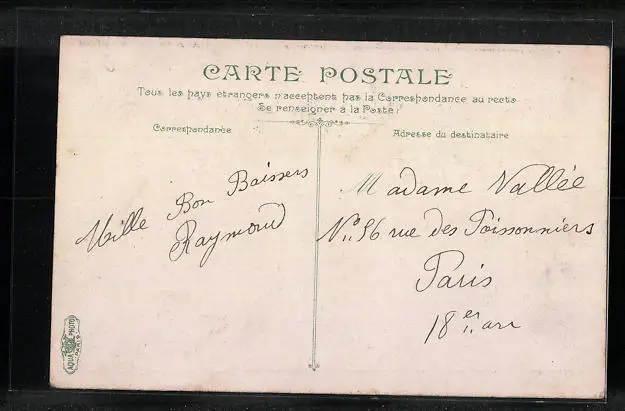 CARTE POSTALE
Tous les pays étrangers n'acceptent pas la Correspondance au recto
Se renseigner à la Poste!
Correspondance
Adresse du destinataire
Mille Bon Baisers
Raymond
Madame Vallée
No 56 rue des Poissonniers
Paris
18er arr
AQUA PHOTO
PARIS